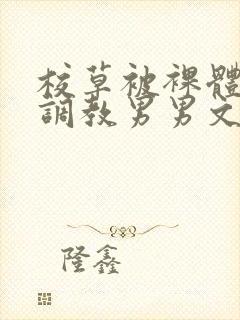 校草被裸體
調教男男文
隆鑫